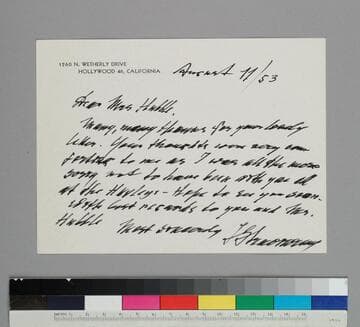 1260 N. WETHERLY DRIVE
HOLLYWOOD 46, CALIFORNIA
August 11/53
Dear Mrs Hubble,
Many, many thanks for your lovely
letter. Your thoughts were very com
forting to me as I was all the more
sorry not to have been with you all
at the Huxleys - Hope to see you soon.
With best regards to you and Mr.
Hubble Most sincerely